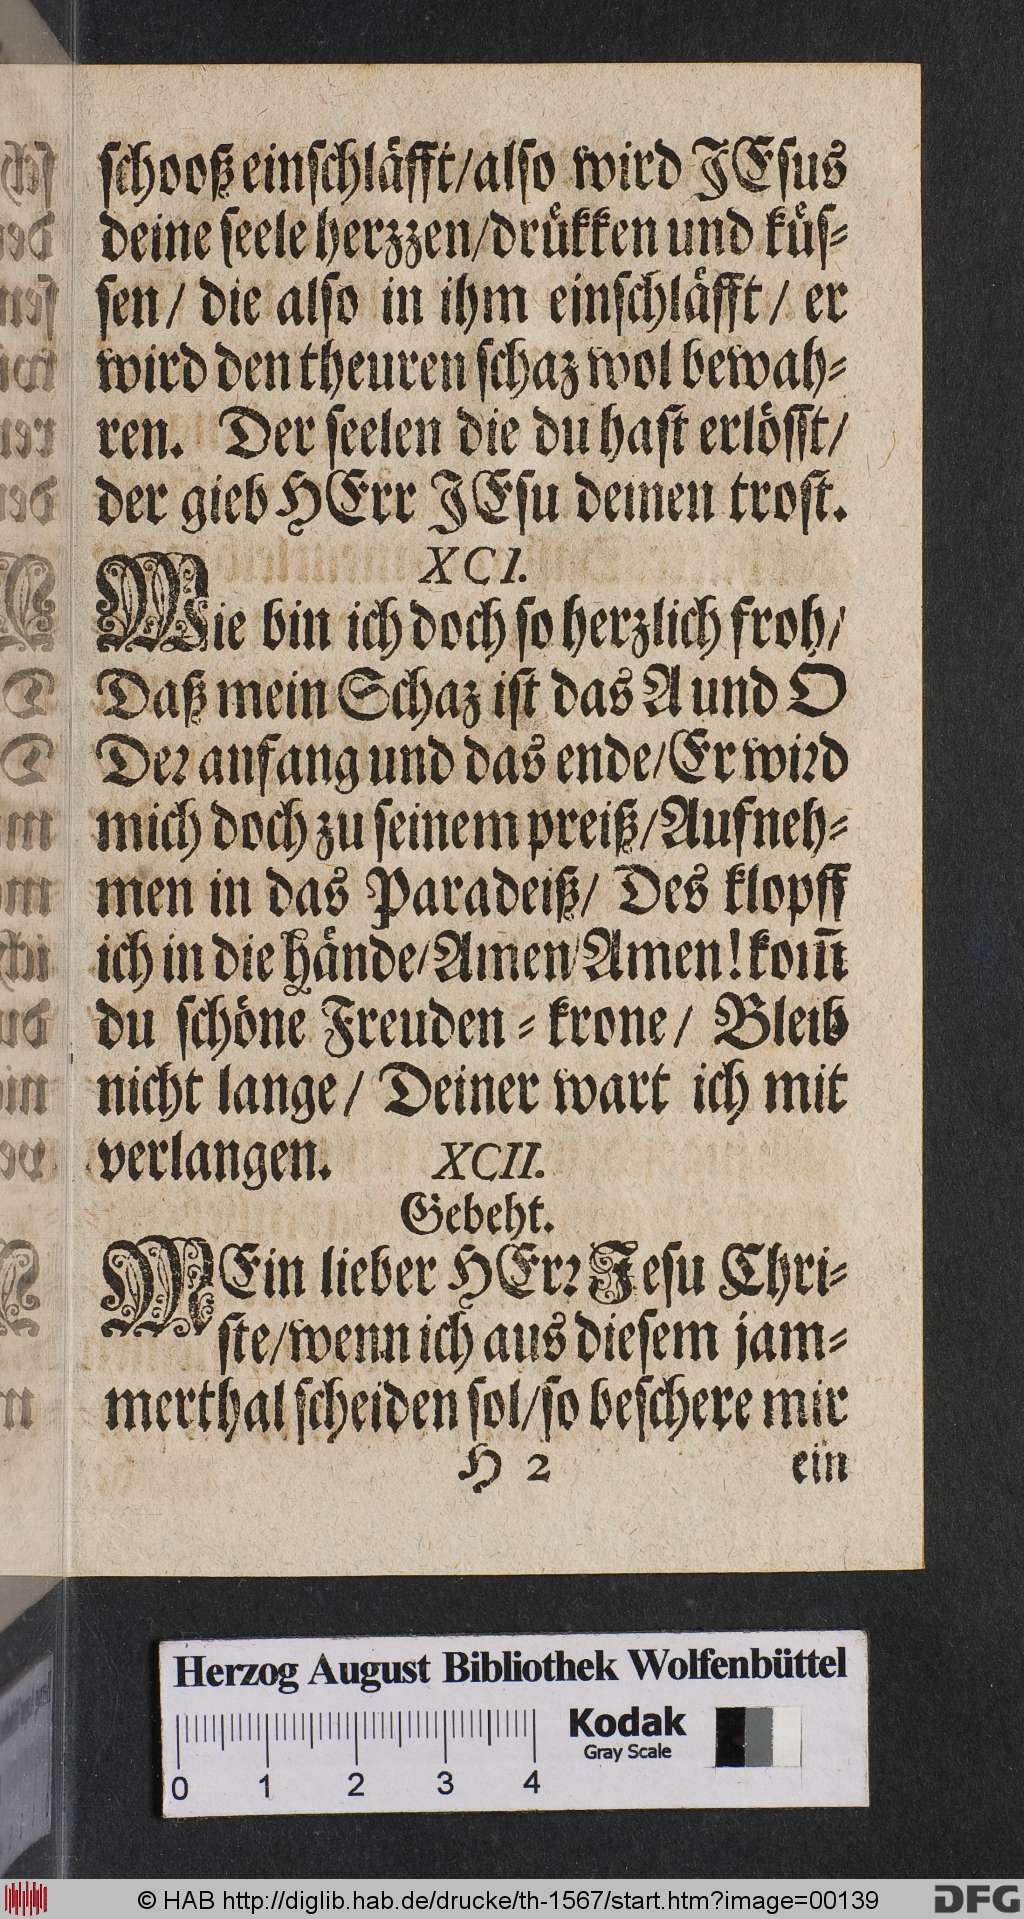 ſchooß einſchläfft/alſo wird JEſus
deine ſeele herzzen/drükken und küſ-
ſen/ die alſo in ihm einſchläfft/ er
wird den theuren ſchaz wol bewah-
ren. Der ſeelen die du haſt erlöſſt/
der gieb HErr JEſu deinen troſt.
XCI.
Wie bin ich doch ſo herzlich froh/
Daß mein Schaz iſt das A und O
Der anfang und das ende/Er wird
mich doch zu ſeinem preiß/Aufneh-
men in das Paradeiß/ Des klopff
ich in die Hände/Amen/Amen! kom̃
du ſchöne Freuden-krone/ Bleib
nicht lange/ Deiner wart ich mit
verlangen. XCII.
Gebeht.
MEin lieber HErr Jeſu Chri-
ſte/wenn ich aus dieſem jam-
merthal ſcheiden ſol/ſo beſchere mir
H 2 ein
Herzog August Bibliothek Wolfenbüttel
Kodak
Gray Scale
0 1 2 3 4
© HAB http://diglib.hab.de/drucke/th-1567/start.htm?image=00139
DFG